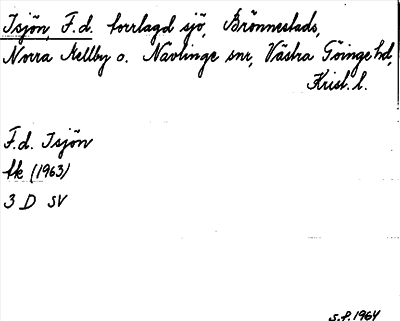 Isjön, F.d. torrlagd sjö, Brönnestads,
Norra Mellby o. Nävlinge snr, Västra Göinge hd,
Krist. l.
F.d. Isjön
tk (1963)
3 D SV
S.F. 1964